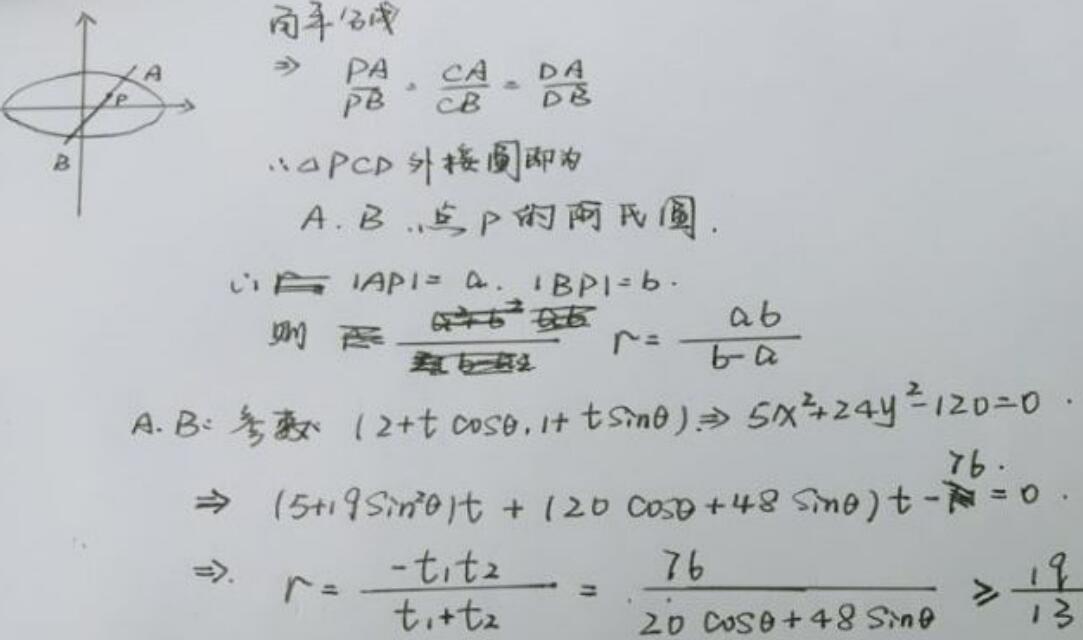 A
P
B
⇒ PA/PB = CA/CB = DA/DB
∴△PCD外接圆即为
A.B.点P的阿氏圆.
∴ |AP|=a. |BP|=b.
则 r= ab/(b-a)
A.B: 参数 (2+t cosθ, 1+t sinθ) ⇒ 5x²+24y²-120=0.
⇒ (5+19sin²θ)t + (20 cosθ+48 sinθ)t - 76 = 0.
⇒. r= -t₁t₂/(t₁+t₂) = 76/(20 cosθ+48 sinθ) ≥ 19/13